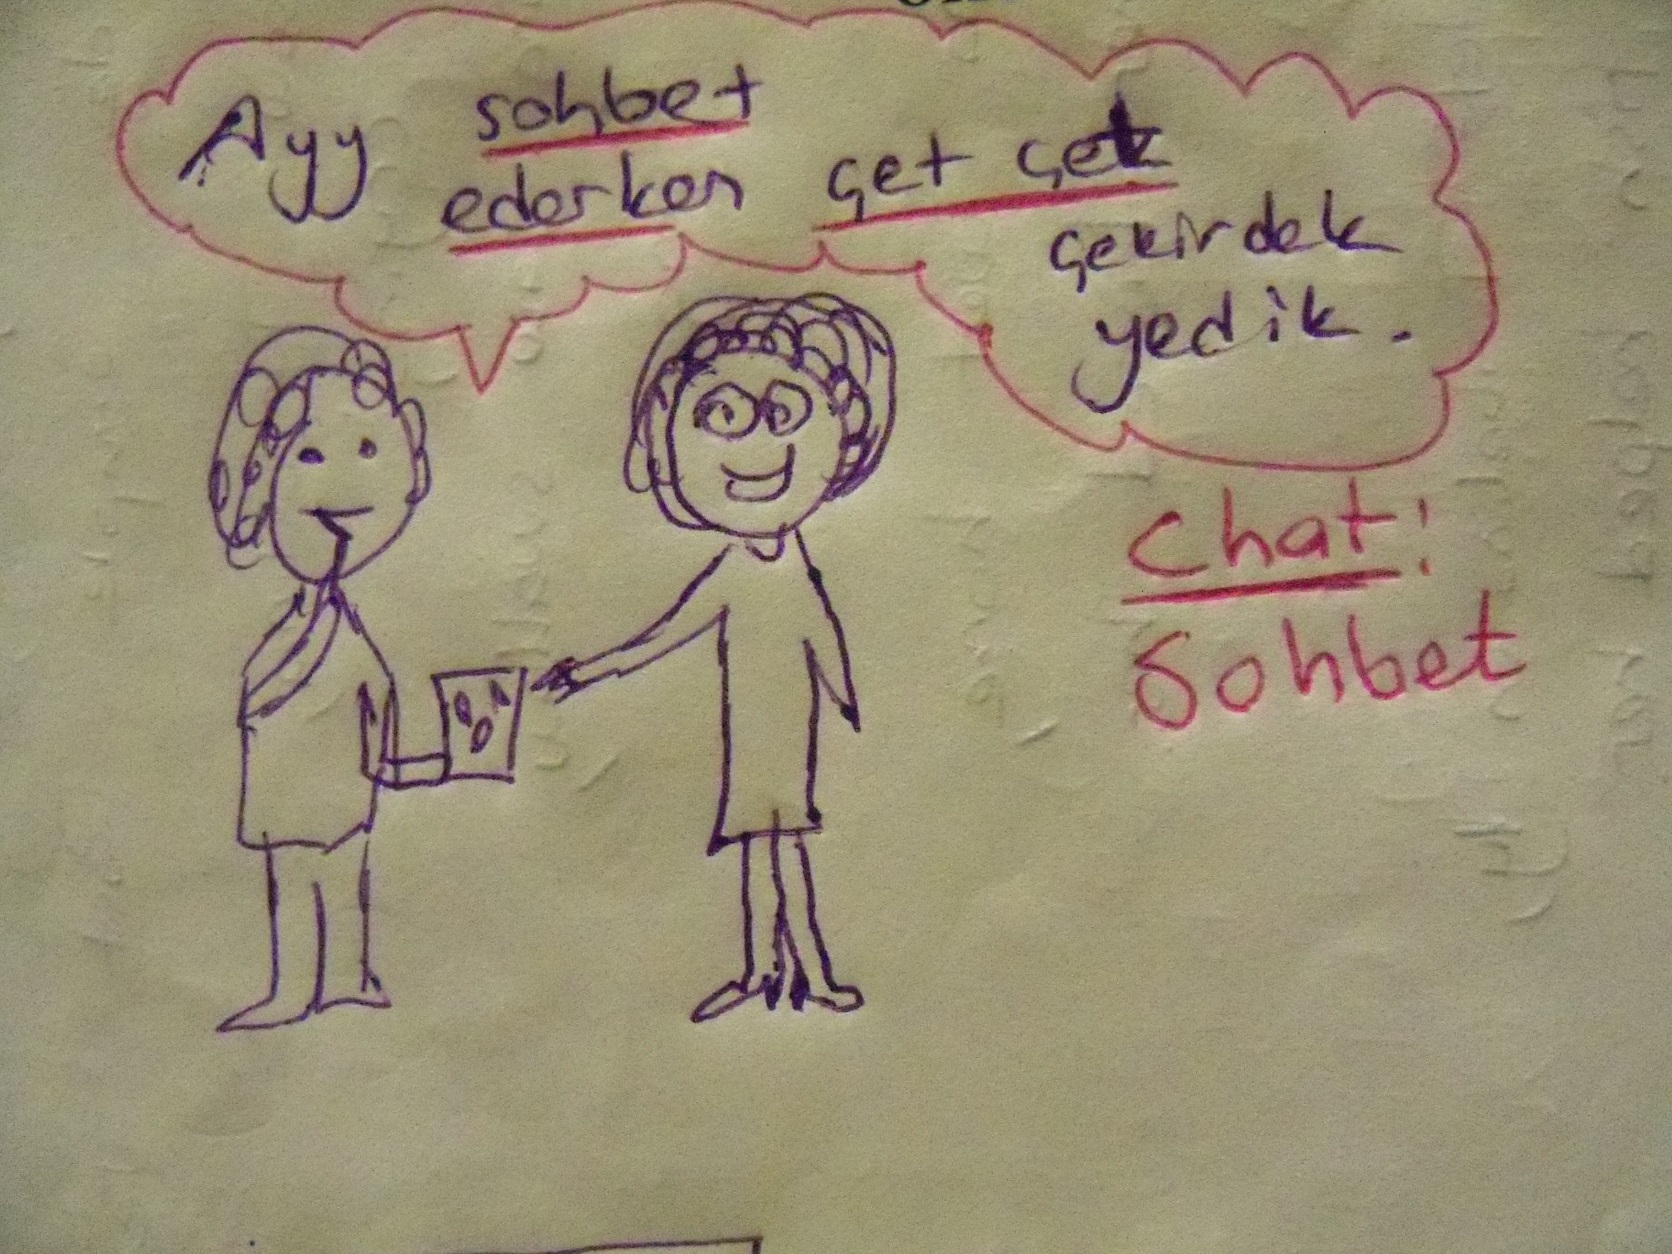 Ayy sohbet
ederken çet çet
çekirdek
yedik.
Chat:
Sohbet